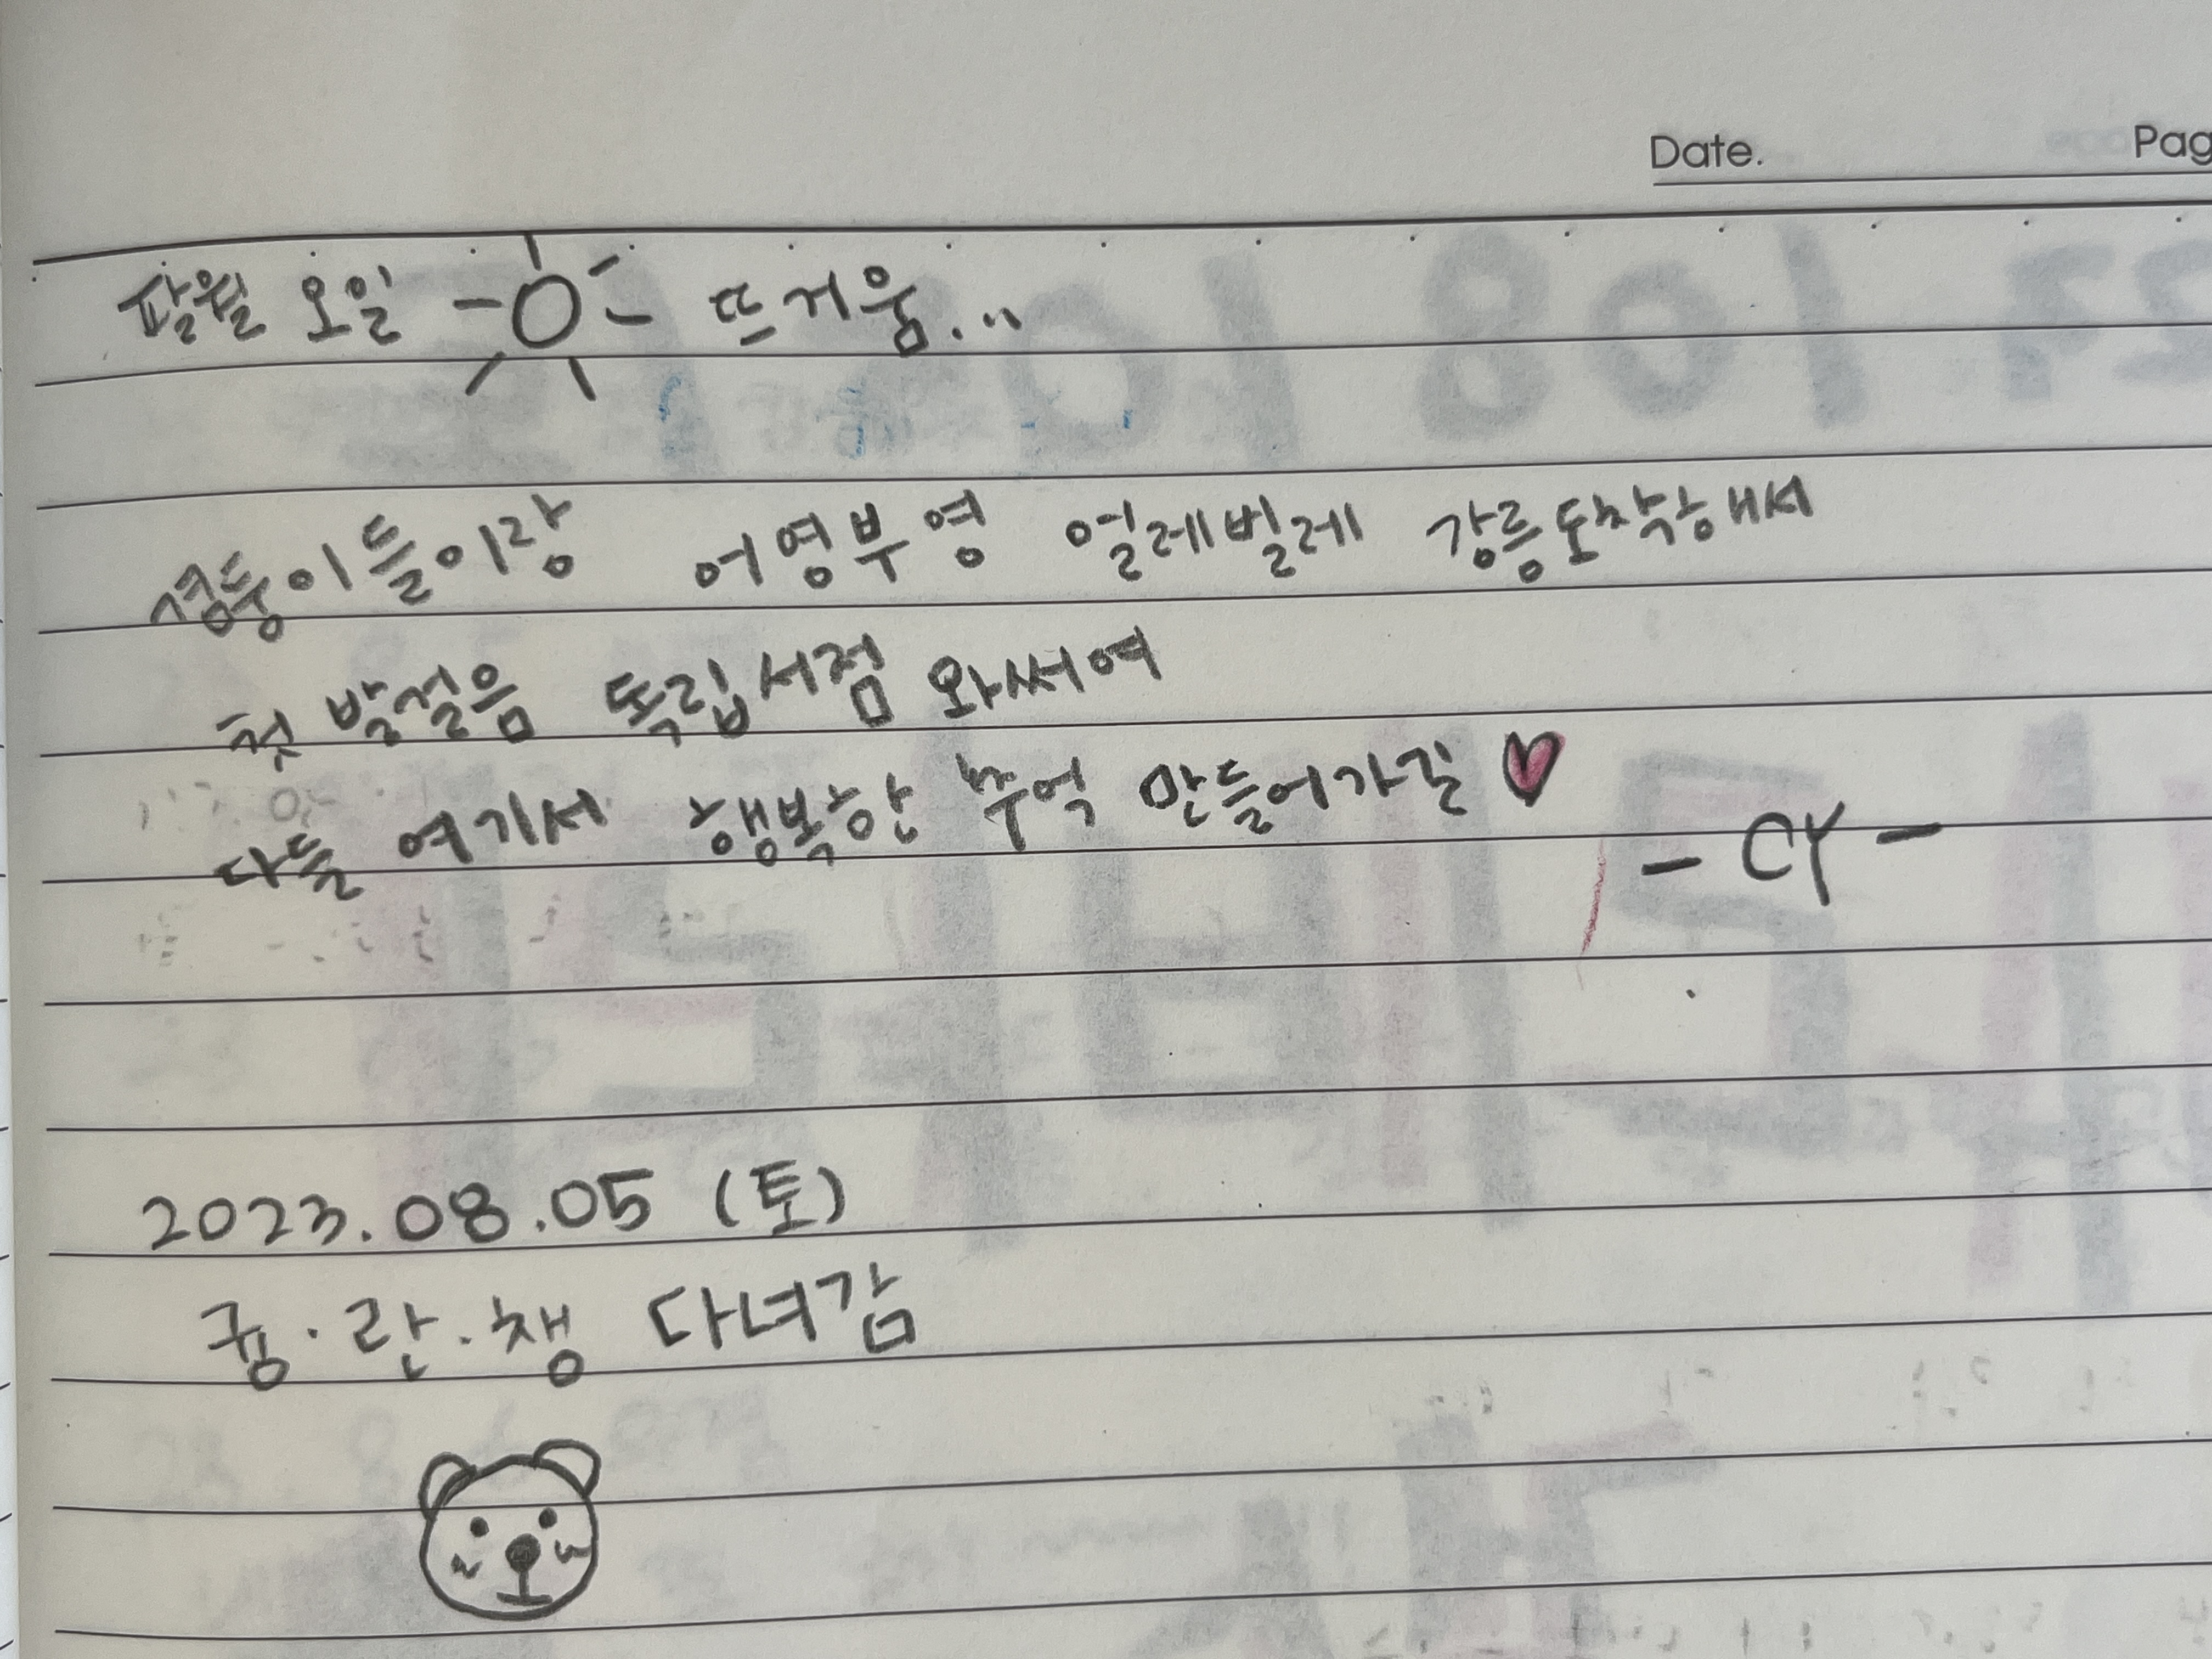 Date. Pag
팔월 오일 뜨거움...
겸둥이들이랑 어영부영 얼레벌레 강릉도착해서
첫 발걸음 독립서점 와써여
다들 여기서 행복한 추억 만들어가길 ♥
- CY -
2023.08.05 (토)
큠·란·챙 다녀감